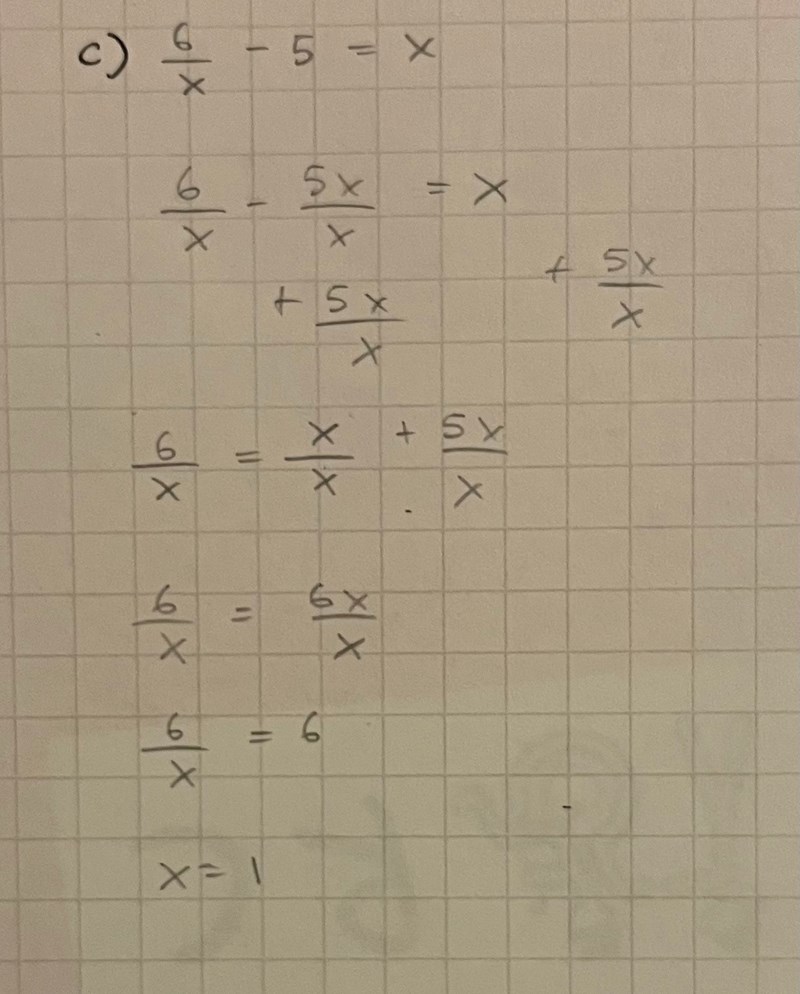 c) 6/x - 5 = x
6/x - 5x/x = x
+ 5x/x + 5x/x
6/x = x/x + 5x/x
6/x = 6x/x
6/x = 6
x = 1